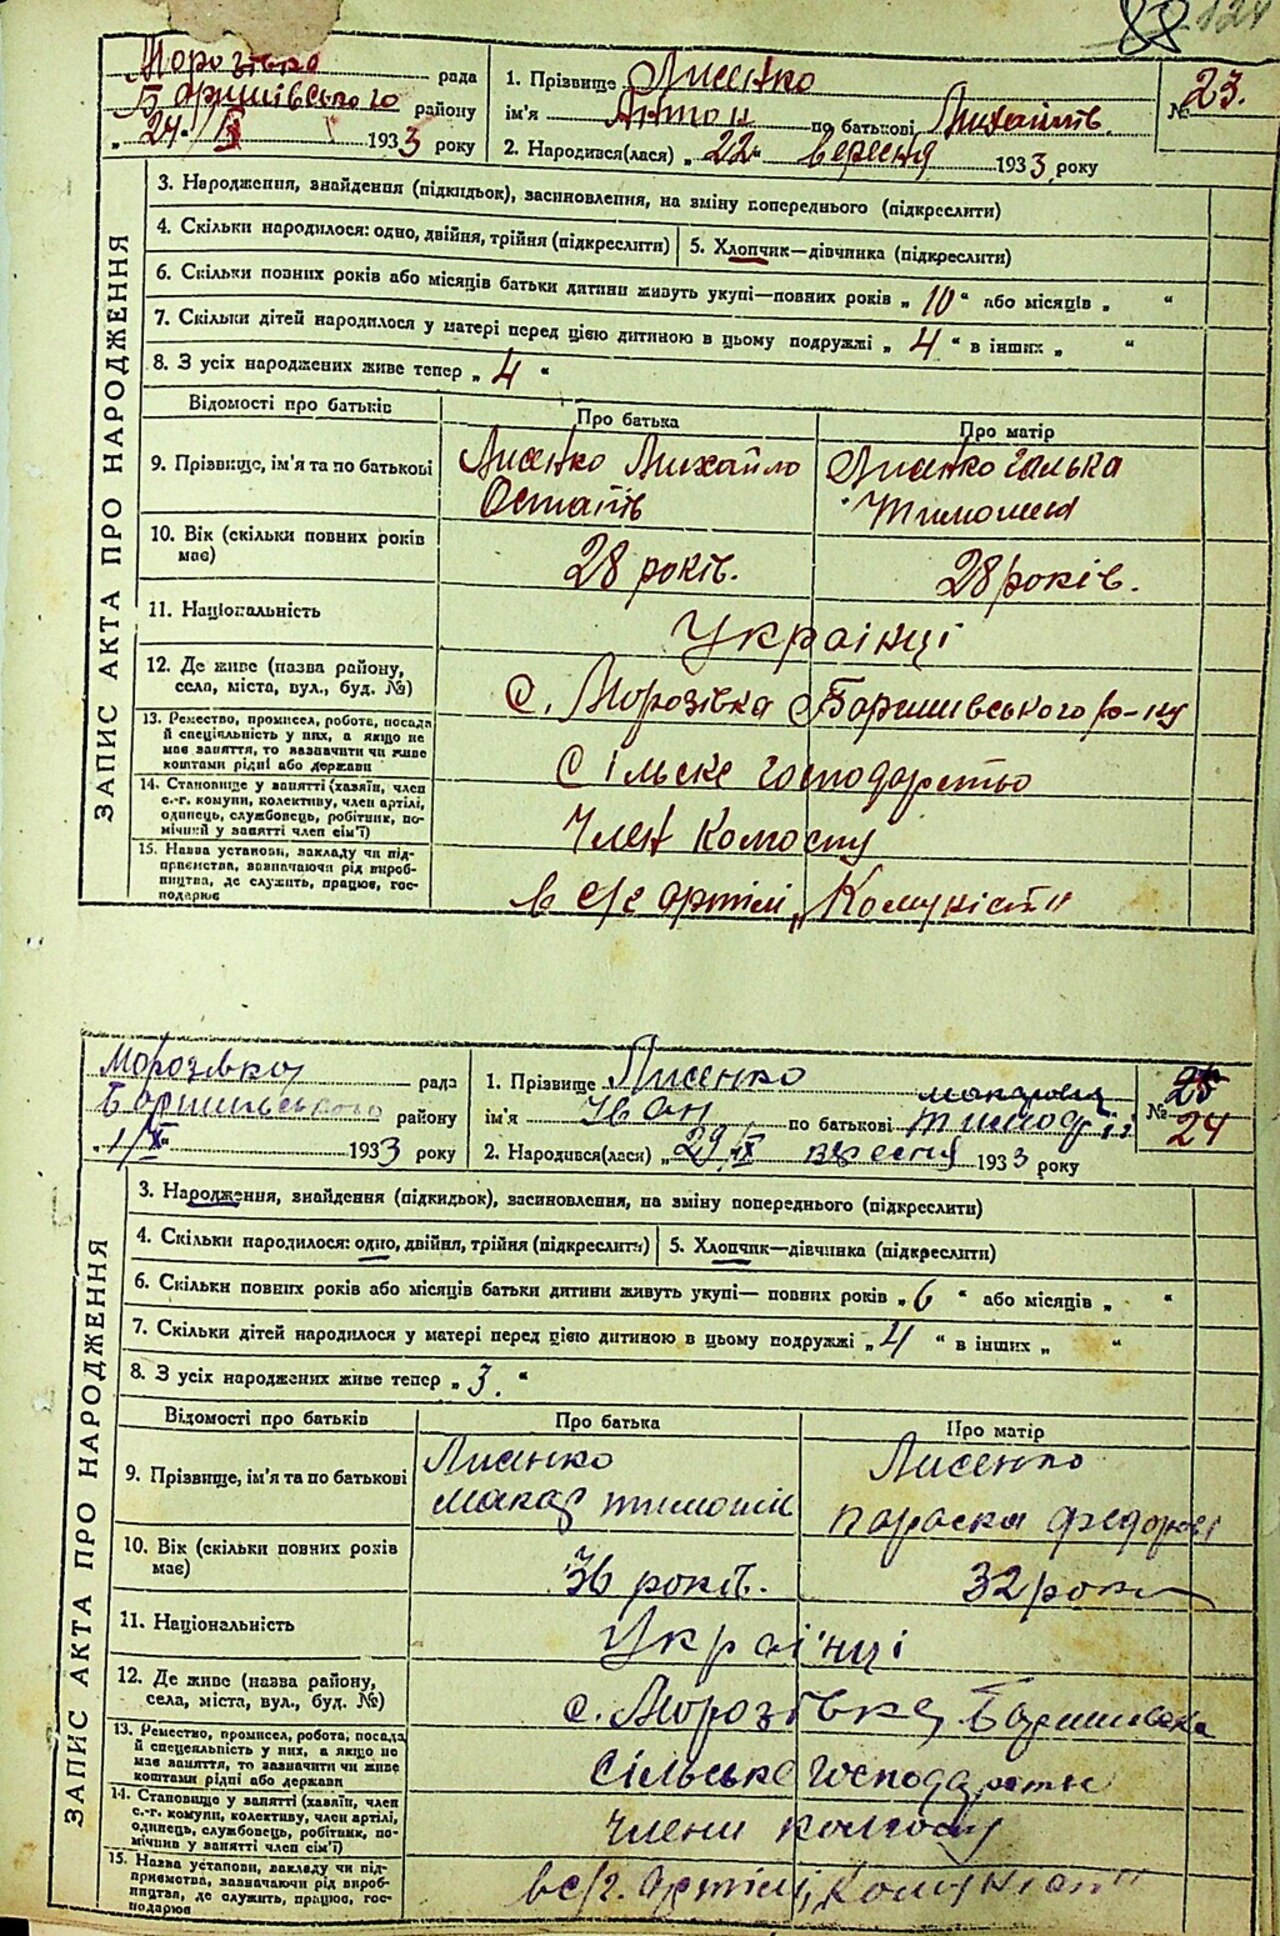 88 124
Морозівка рада
Баришівського району
„ 24 / IX 1933 року
1. Прізвище Лисенко
ім'я Антон по батькові Михайлів
2. Народився(лася) „ 22 " вересня 1933 року
№ 23.
ЗАПИС АКТА ПРО НАРОДЖЕННЯ
3. Народження, знайдення (підкидьок), засиновлення, на зміну попереднього (підкреслити)
4. Скільки народилося: одно, двійня, трійня (підкреслити) 5. Хлопчик—дівчинка (підкреслити)
6. Скільки повних років або місяців батьки дитини живуть укупі—повних років „ 10 " або місяців „ "
7. Скільки дітей народилося у матері перед цією дитиною в цьому подружжі „ 4 " в інших „ "
8. З усіх народжених живе тепер „ 4 "
Відомості про батьків Про батька Про матір
9. Прізвище, ім'я та по батькові Лисенко Михайло Лисенко Галька
Остапів Тимошівна
10. Вік (скільки повних років
має) 28 років. 28 років.
11. Національність Украінці
12. Де живе (назва району,
села, міста, вул., буд. №) С. Морозівка Баришівського р-ну
13. Ремество, промисел, робота, посада
й спеціяльність у них, а якщо не
має заняття, то зазначити чи живе
коштами рідні або держави Сільске господарство
14. Становище у занятті (хазяїн, член
с.-г. комуни, колективу, член артілі,
одинець, службовець, робітник, по-
мічний у занятті член сім'ї) Член колгоспу
15. Назва установи, закладу чи під-
приємства, зазначаючи рід вироб-
ництва, де служить, працює, гос-
подарює в с/г артілі „Комуніст"
Морозівка рада
Баришівського району
„ 1/X " 1933 року
1. Прізвище Лисенко
Макарович
ім'я Іван по батькові
2. Народився(лася) „ 29/IX вересня 1933 року
25
№ 24
ЗАПИС АКТА ПРО НАРОДЖЕННЯ
3. Народження, знайдення (підкидьок), засиновлення, на зміну попереднього (підкреслити)
4. Скільки народилося: одно, двійня, трійня (підкреслити) 5. Хлопчик—дівчинка (підкреслити)
6. Скільки повних років або місяців батьки дитини живуть укупі— повних років „ 6 " або місяців „ "
7. Скільки дітей народилося у матері перед цією дитиною в цьому подружжі „ 4 " в інших „ "
8. З усіх народжених живе тепер „ 3. "
Відомості про батьків Про батька Про матір
9. Прізвище, ім'я та по батькові Лисенко Лисенко
Макар Тимошів Параска Федорові
10. Вік (скільки повних років
має) 36 років. 32 роки
11. Національність Украінці
12. Де живе (назва району,
села, міста, вул., буд. №) с. Морозівка, Баришівська
13. Ремество, промисел, робота, посада
й спецеяльність у них, а якщо не
має заняття, то зазначити чи живе
коштами рідні або держави Сільське господарство
14. Становище у занятті (хазяїн, член
с.-г. комуни, колективу, член артілі,
одинець, службовець, робітник, по-
мічний у занятті член сім'ї) члени колгоспу
15. Назва установи, закладу чи під-
приємства, зазначаючи рід вироб-
ництва, де служить, працює, гос-
подарює в с/г. Артілі „Комуніст"